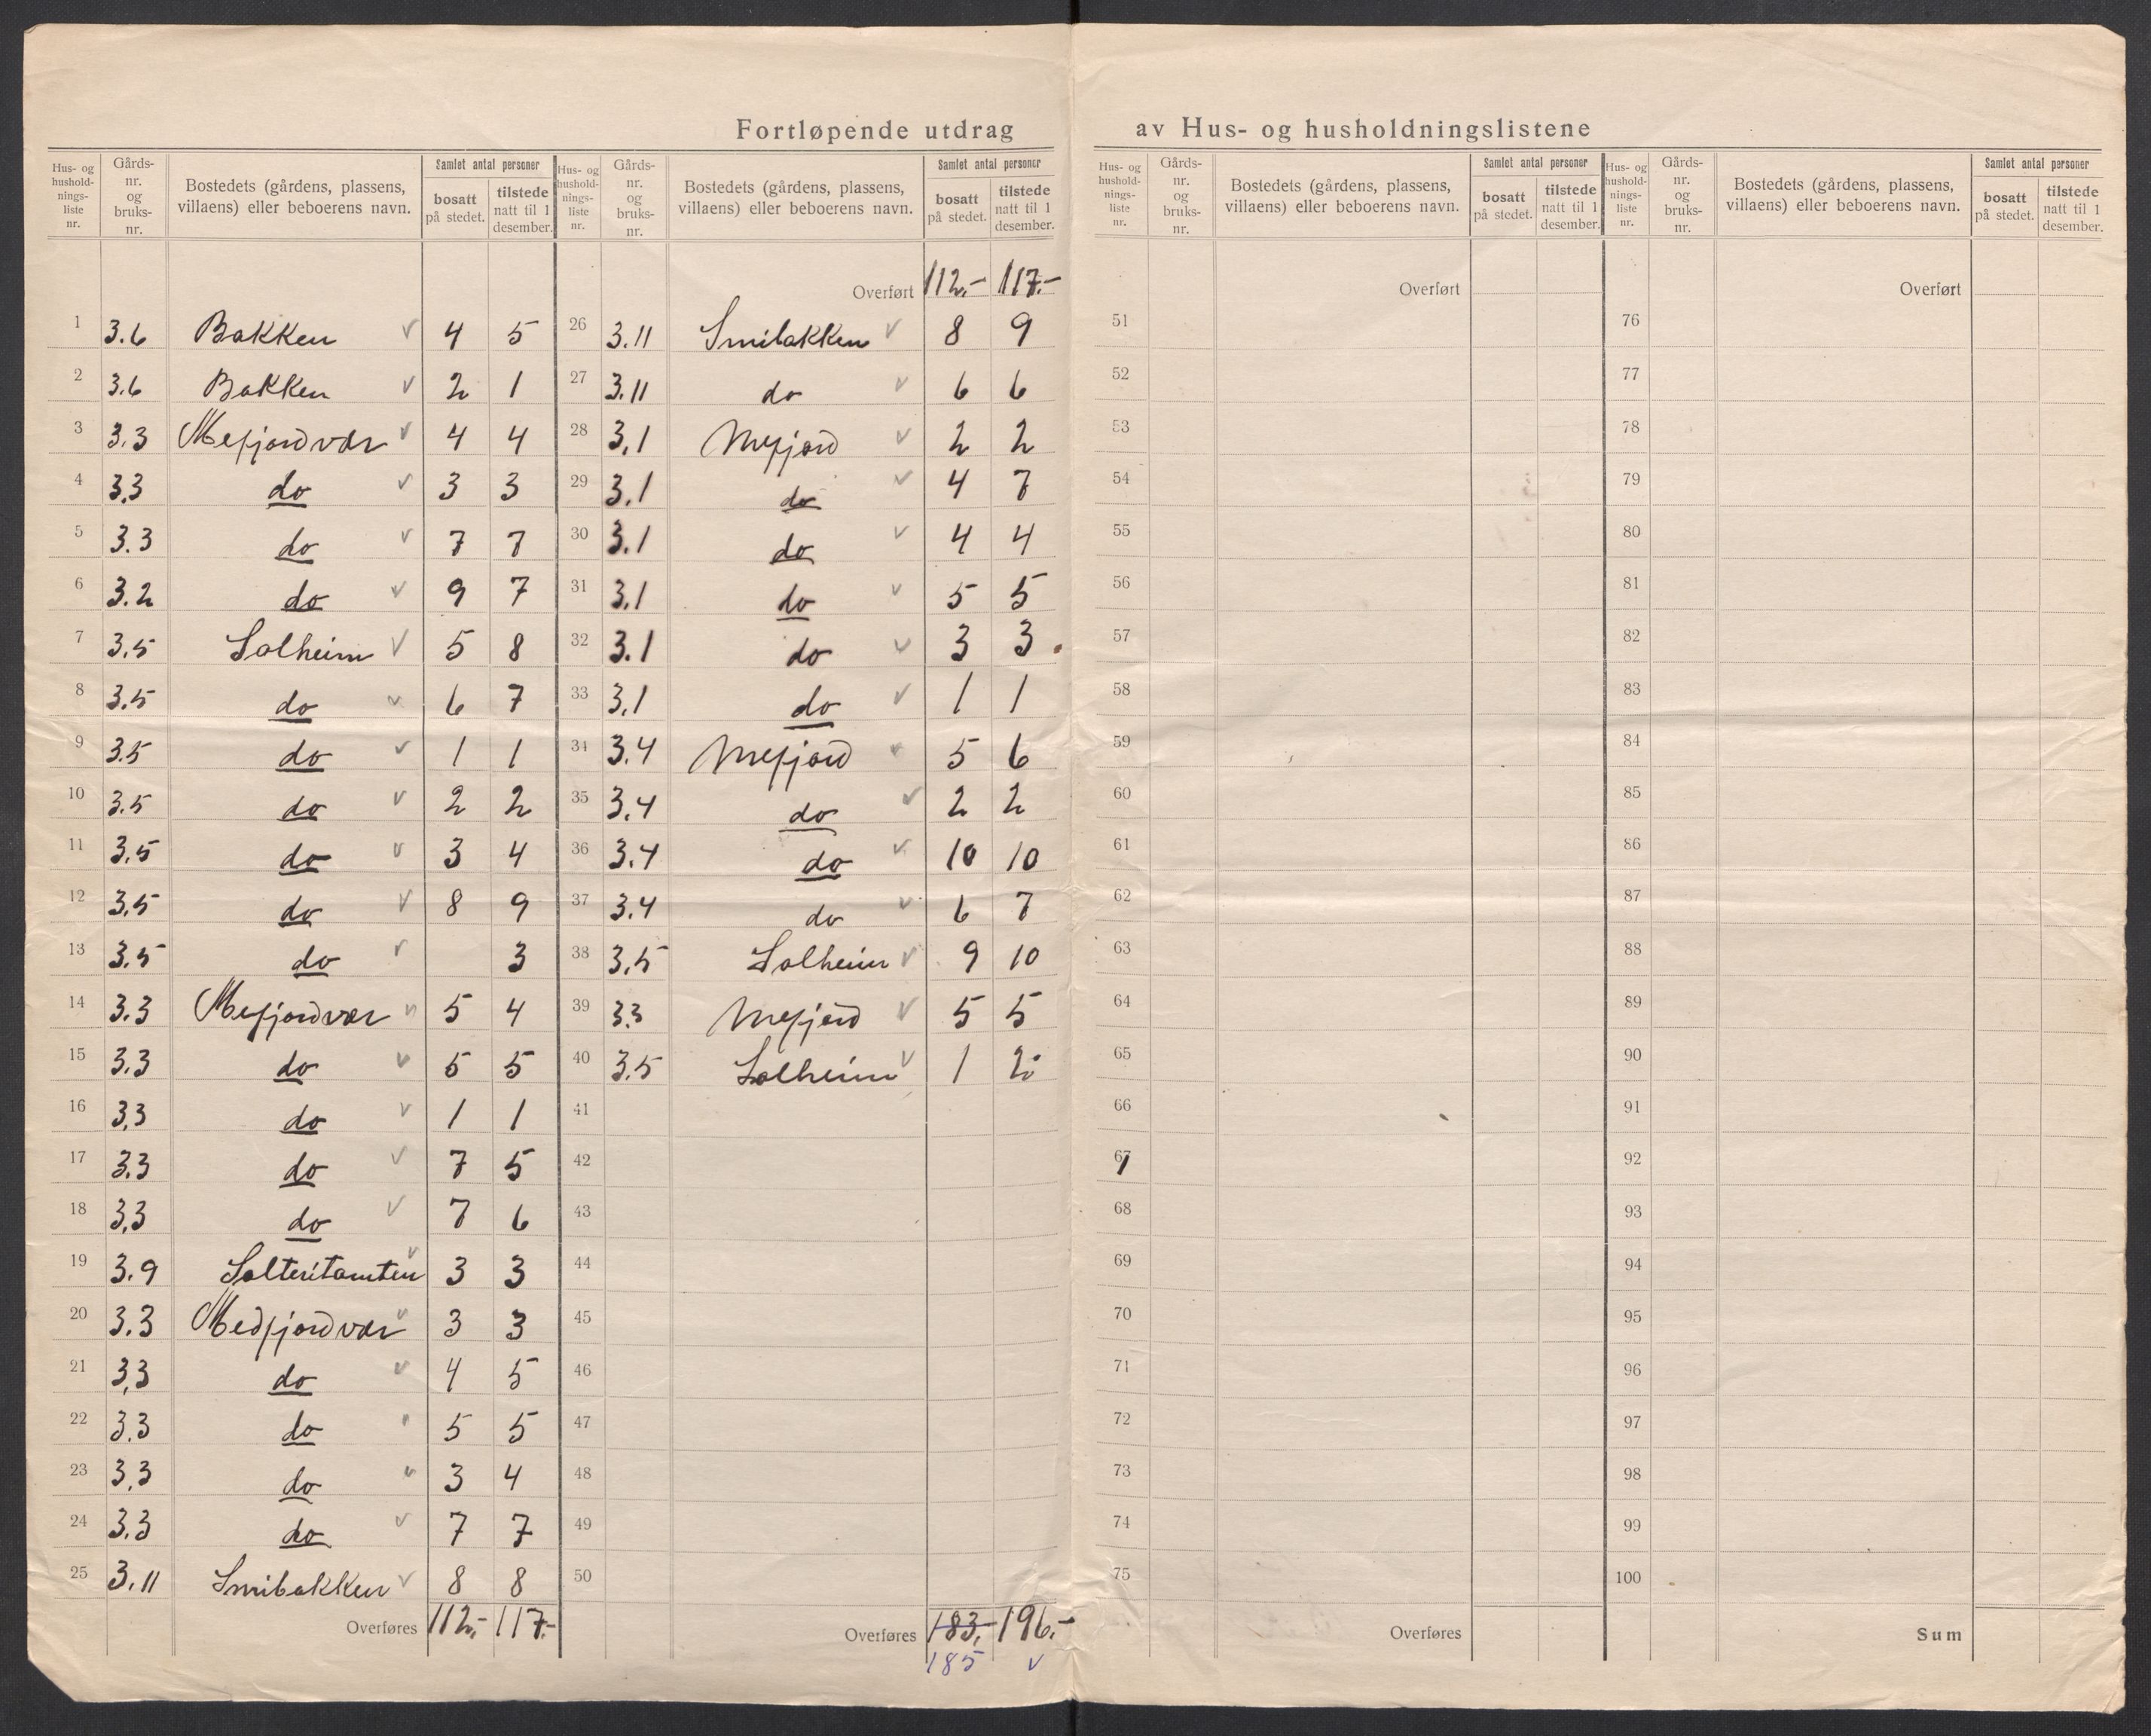 Fortløpende utdrag av Hus- og husholdningslistene
Hus- og hushold-nings-liste nr. | Gårds-nr. og bruks-nr. | Bostedets (gårdens, plassens, villaens) eller beboerens navn. | Samlet antal personer | bosatt på stedet. | tilstede natt til 1 desember.
1 3.6 Bakken v 4 5
2 3.6 Bakken v 2 1
3 3.3 Mefjordvær v 4 4
4 3.3 do v 3 3
5 3.3 do v 7 7
6 3.2 do v 9 7
7 3.5 Solheim v 5 8
8 3.5 do v 6 7
9 3.5 do v 1 1
10 3.5 do v 2 2
11 3.5 do v 3 4
12 3.5 do v 8 9
13 3.5 do v 3
14 3.3 Mefjordvær v 5 4
15 3.3 do v 5 5
16 3.3 do v 1 1
17 3.3 do v 7 5
18 3.3 do v 7 6
19 3.9 Salteritomten v 3 3
20 3.3 Medfjordvær v 3 3
21 3.3 do v 4 5
22 3.3 do v 5 5
23 3.3 do v 3 4
24 3.3 do v 7 7
25 3.11 Smibakken v 8 8
Overføres 112,- 117.-
Hus- og hushold-nings-liste nr. | Gårds-nr. og bruks-nr. | Bostedets (gårdens, plassens, villaens) eller beboerens navn. | Samlet antal personer | bosatt på stedet. | tilstede natt til 1 desember.
Overført 112.- 117.-
26 3.11 Smibakken v 8 9
27 3.11 do v 6 6
28 3.1 Mefjord v 2 2
29 3.1 do v 4 7
30 3.1 do v 4 4
31 3.1 do v 5 5
32 3.1 do v 3 3
33 3.1 do v 1 1
34 3.4 Mefjord v 5 6
35 3.4 do v 2 2
36 3.4 do v 10 10
37 3.4 do v 6 7
38 3.5 Solheim v 9 10
39 3.3 Mefjord v 5 5
40 3.5 Solheim v 1 2
41
42
43
44
45
46
47
48
49
50
Overføres 183,- 196.-
185 v
Hus- og hushold-nings-liste nr. | Gårds-nr. og bruks-nr. | Bostedets (gårdens, plassens, villaens) eller beboerens navn. | Samlet antal personer | bosatt på stedet. | tilstede natt til 1 desember.
Overført
51
52
53
54
55
56
57
58
59
60
61
62
63
64
65
66
67
68
69
70
71
72
73
74
75
Overføres
Hus- og hushold-nings-liste nr. | Gårds-nr. og bruks-nr. | Bostedets (gårdens, plassens, villaens) eller beboerens navn. | Samlet antal personer | bosatt på stedet. | tilstede natt til 1 desember.
Overført
76
77
78
79
80
81
82
83
84
85
86
87
88
89
90
91
92
93
94
95
96
97
98
99
100
Sum